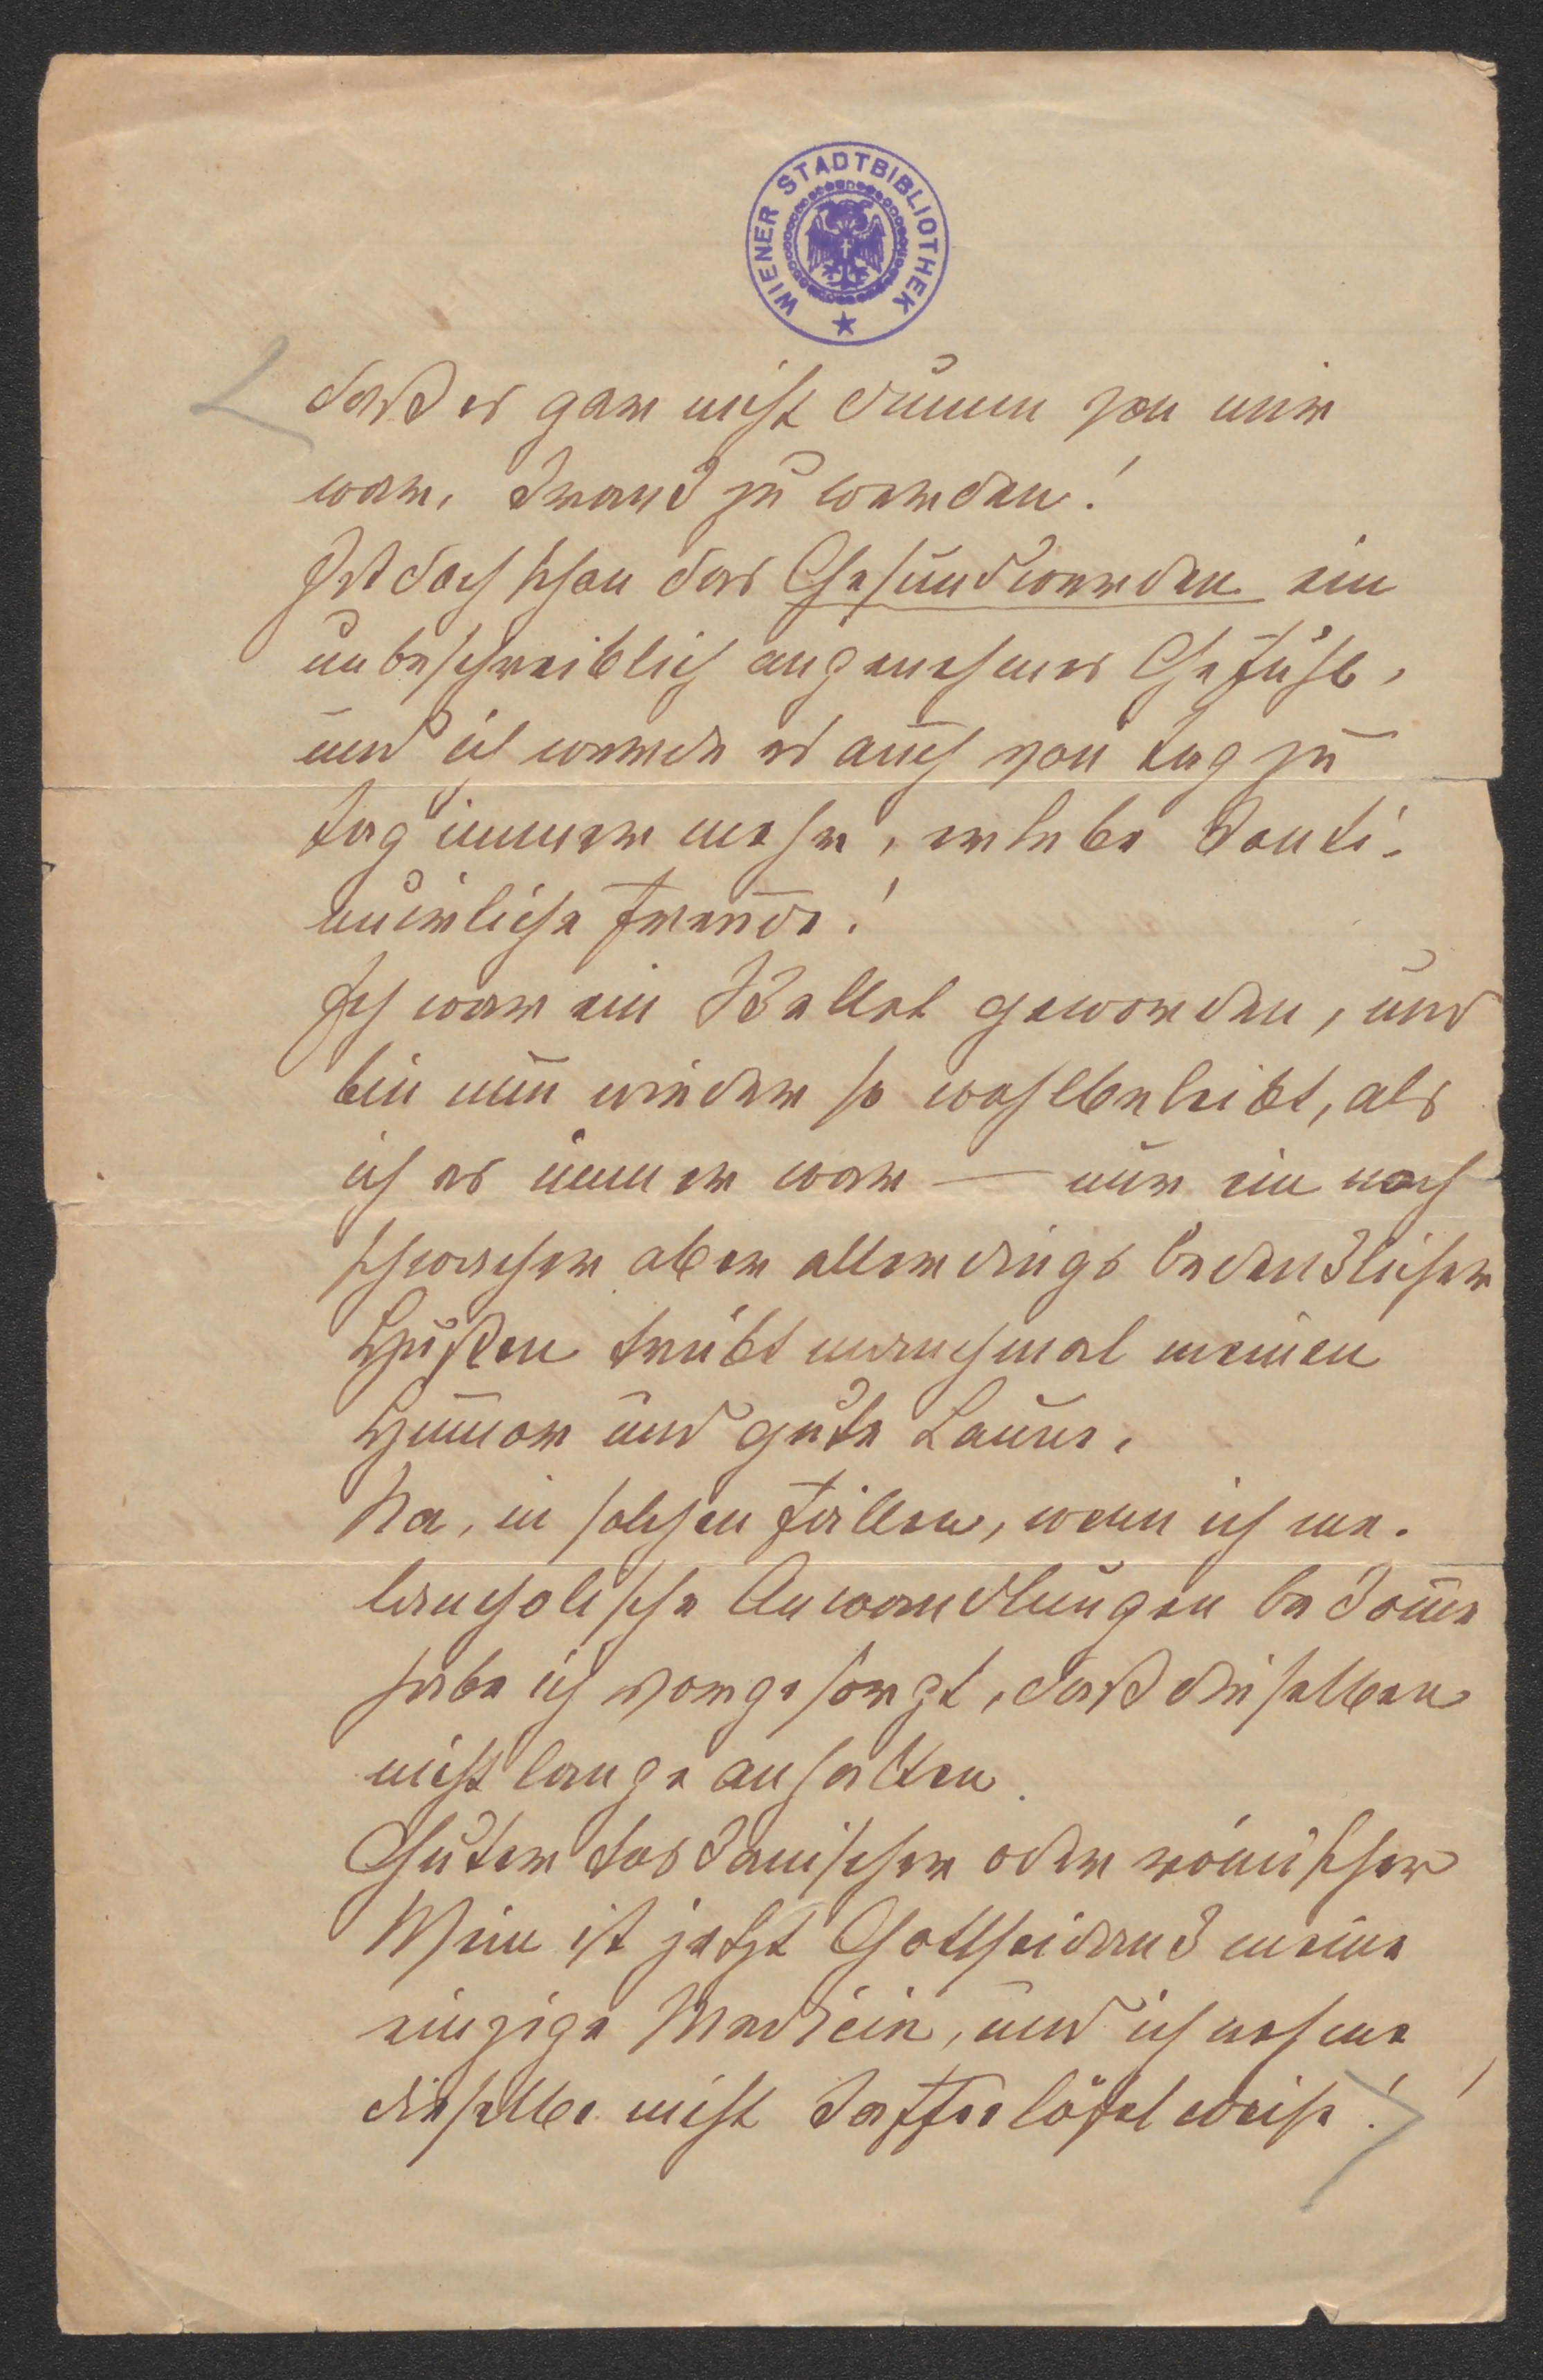 WIENER STADTBIBLIOTHEK
daß es gar nicht dumm von mir
war, krank zu werden!
Ist doch schon das Gesundwerden ein
unbeschreiblich angenehmes Gefühl,
und ich werde es auch von Tag zu
Tag immer mehr, erlebe konti-
nuirliche Freude!
Ich war ein Skellet geworden, und
bin nun wieder so wohlbeleibt, als
ich es immer war — nur ein noch
schwacher aber allerdings bedenklicher
Hußten trübt manchmal meinen
Humor und gute Laune.
Na, in solchen Fällen, wenn ich me-
lancholische Anwandlungen bekome
habe ich vorgesorgt, daß dieselben
nicht lange anhalten.
Guter toskanischer oder römischer
Wein ist jetzt Gottseidank meine
einzige Medicin, und ich nehme
dieselbe nicht kaffeelöfelweise!